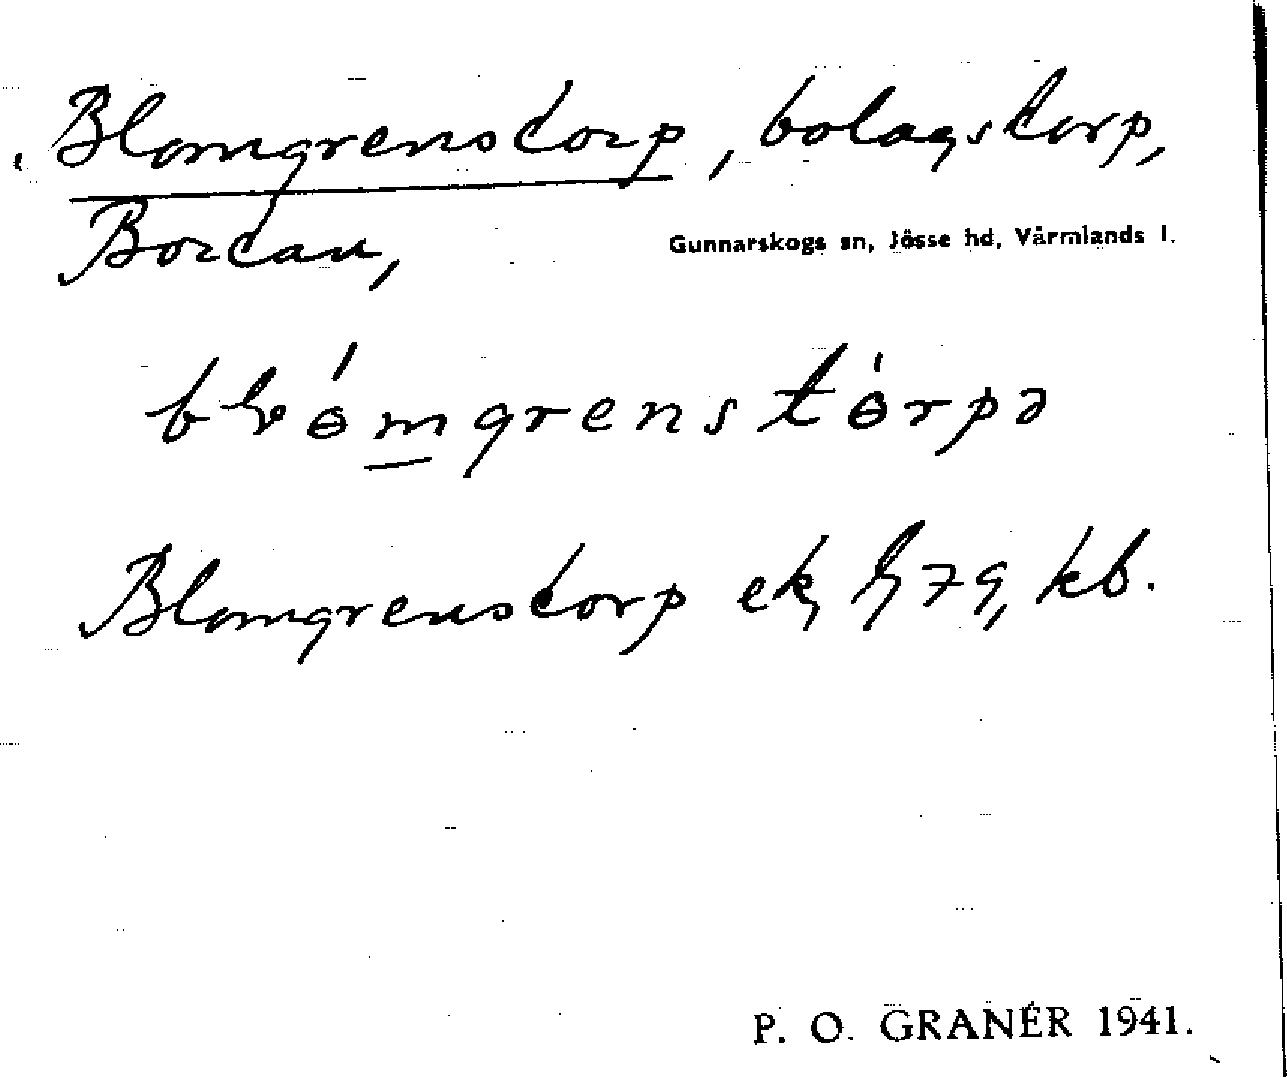 Blomgrenstorp, bolagstorp,
Bortan,
Gunnarskogs sn, Jösse hd, Värmlands l.
Blomgrenstorp ek, kb.
P. O. GRANÉR 1941.